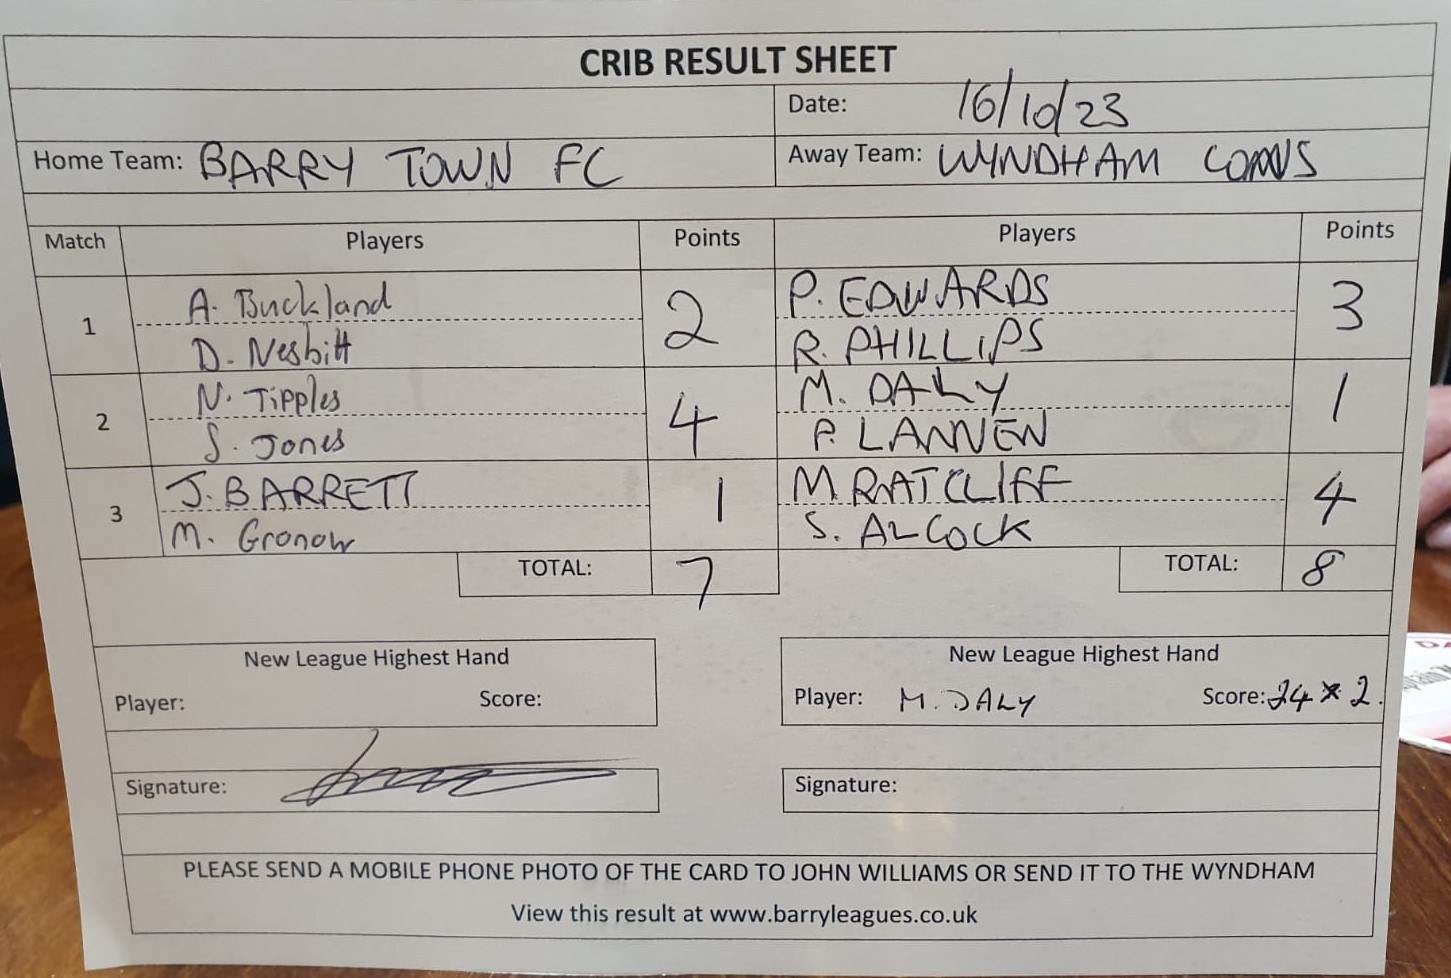 CRIB RESULT SHEET
Date: 16/10/23
Home Team: BARRY TOWN FC Away Team: WYNDHAM CONNS
Match Players Points Players Points
A. Buckland P. EDWARDS
1 2 3
D. Nesbitt R. PHILLIPS
N. Tipples M. DALY
2 4 1
S. Jones P. LANNEN
J. BARRETT M. RATCLIFF
3 1 4
M. Gronow S. ALCOCK
TOTAL: 7 TOTAL: 8
New League Highest Hand New League Highest Hand
Player: Score: Player: M. DALY Score: 24 x 2.
Signature: Signature:
PLEASE SEND A MOBILE PHONE PHOTO OF THE CARD TO JOHN WILLIAMS OR SEND IT TO THE WYNDHAM
View this result at www.barryleagues.co.uk